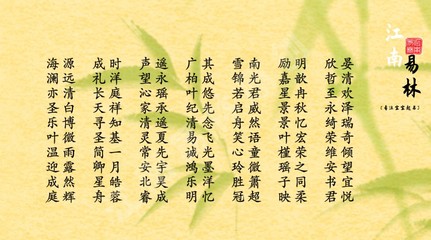 江南
易林
晏清欢泽瑞奇倾望宜悦
欣哲至永绮荣维安书君
明歆冉秋忆宏荣之同柔
励嘉星景景叶槿瑶子映
南光君威然语童微萧超
雪锦若启舟笑心玲胜冠
其成悠先念飞光墨洋忆
广柏叶纪清易诚鸿乐明
遥永瑶承遥夏先宇昊成
声望沁家清灵常安北睿
时洋庭祥知基一月皓蓉
成礼长天寻圣简卿星舟
源远清白博微雨露然辉
海澜亦圣乐叶温迎成庭